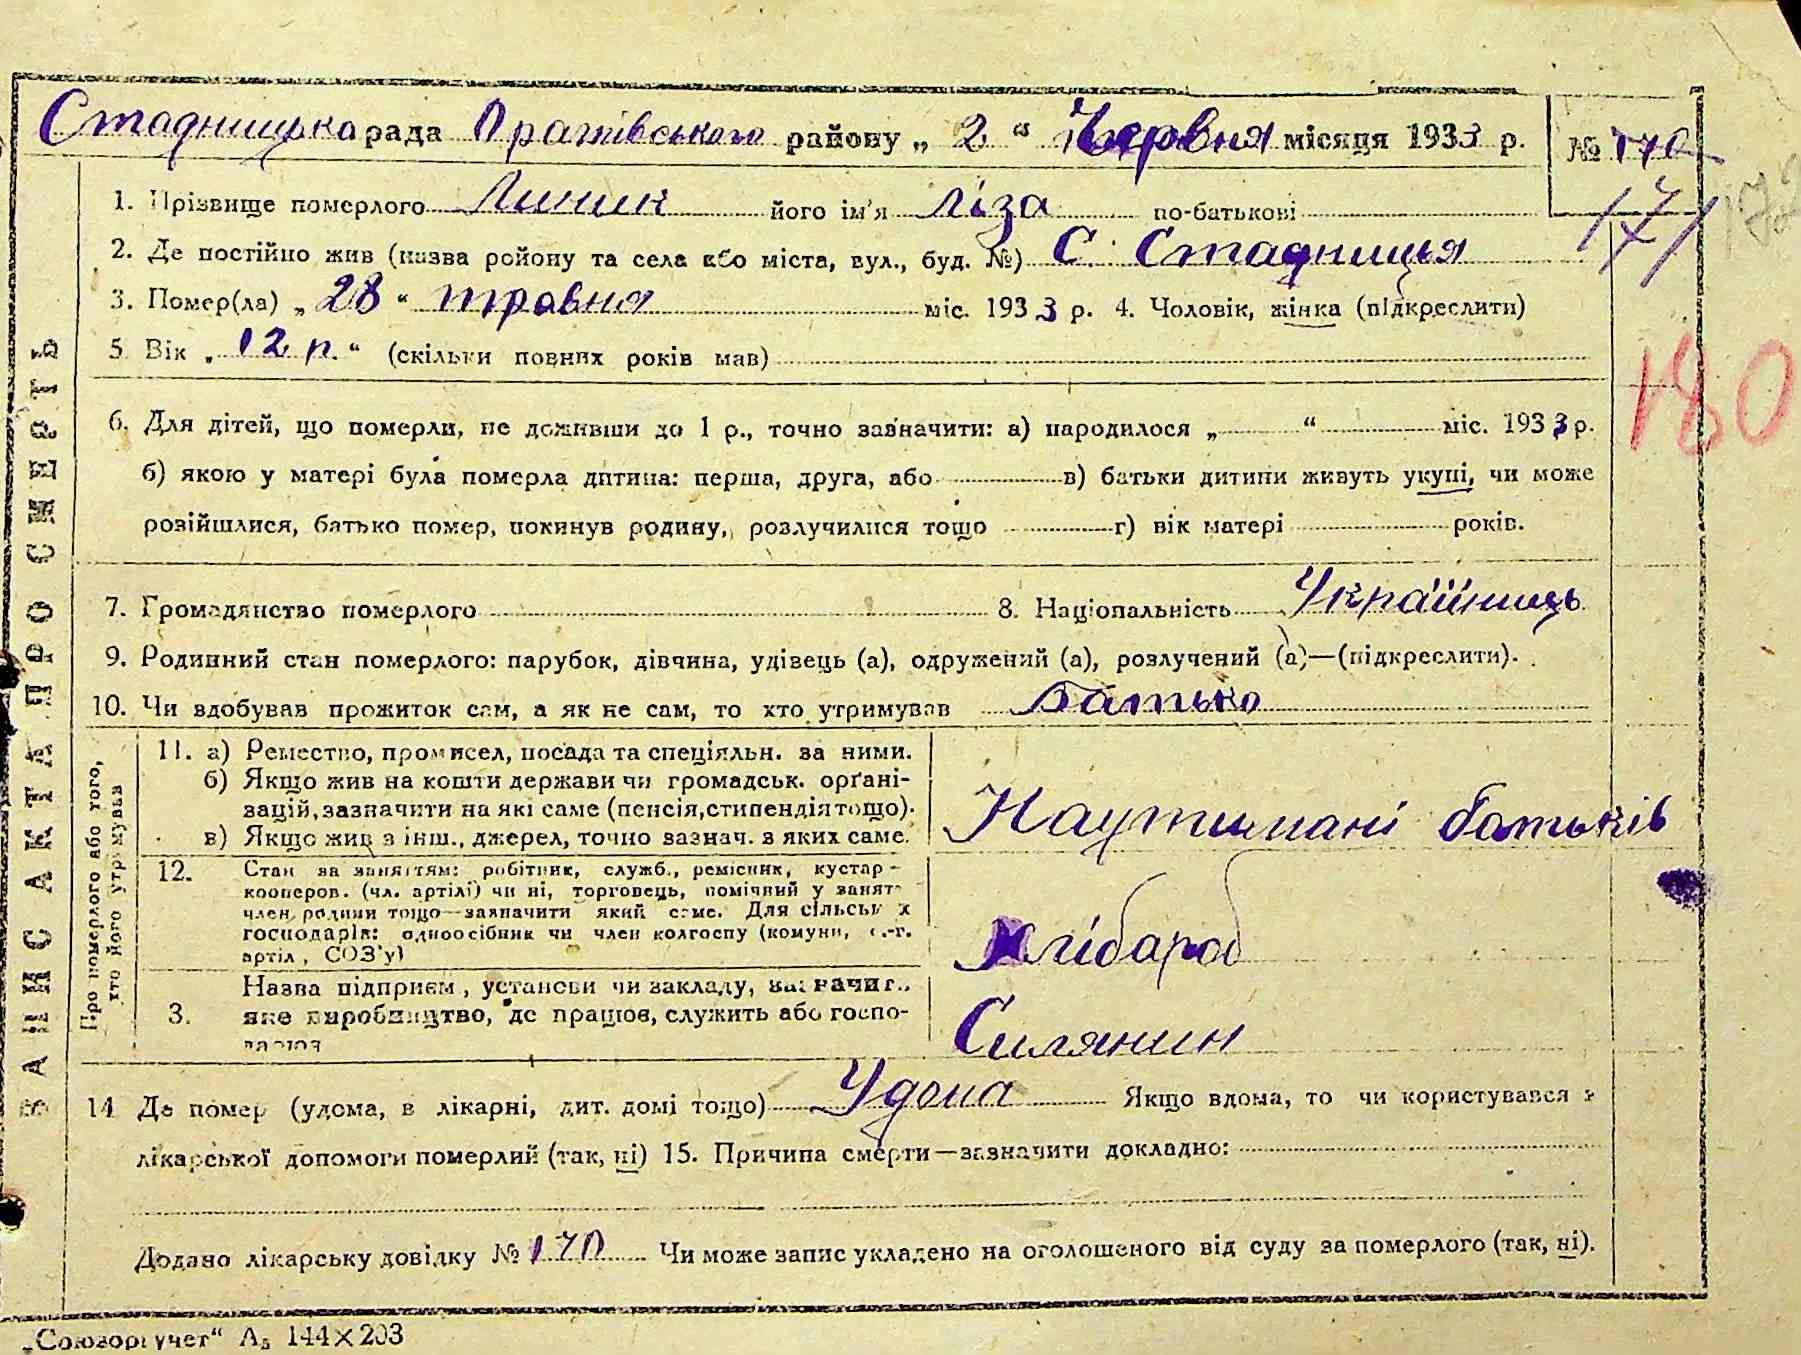 Стадницька рада Оратівського району „ 2 “ Червня місяця 1933 р. № 170
171
172
1. Прізвище померлого Линик його ім'я Ліза по-батькові
2. Де постійно жив (назва ройону та села або міста, вул., буд. №) С. Стадниця
3. Помер(ла) „ 28 “ травня міс. 1933 р. 4. Чоловік, жінка (підкреслити)
5 Вік „ 12 р. “ (скільки повних років мав)
180
6. Для дітей, що померли, не доживши до 1 р., точно зазначити: а) народилося „ “ міс. 1933 р.
б) якою у матері була померла дитина: перша, друга, або в) батьки дитини живуть укупі, чи може
розійшлися, батько помер, покинув родину, розлучилися тощо г) вік матері років.
7. Громадянство померлого 8. Національність Україниць
9. Родинний стан померлого: парубок, дівчина, удівець (а), одружений (а), розлучений (а)—(підкреслити).
10. Чи здобував прожиток сам, а як не сам, то хто утримував Батько
ЗАПИС АКТА ПРО СМЕРТЬ
Про померлого або того,
хто його утримував
11. а) Ремество, промисел, посада та спеціяльн. за ними.
б) Якщо жив на кошти держави чи громадськ. орґані-
зацій, зазначити на які саме (пенсія, стипендія тощо).
в) Якщо жив з інш., джерел, точно зазнач. з яких саме.
Наутимані батьків
12. Стан за заняттям: робітник, служб., ремісник, кустар-
кооперов. (чл. артілі) чи ні, торговець, помічний у занят
член родини тощо—зазначити який саме. Для сільськ х
господарів: одноосібник чи член колгоспу (комуни, с.-г.
артіл , СОЗ'у)
Хлібароб
Назва підприєм , установи чи закладу, зазначит.,
3. яке виробництво, де працюв, служить або госпо-
дарюв
Силянин
14 Де помер (удома, в лікарні, дит. домі тощо) Удома Якщо вдома, то чи користувався з
лікарської допомоги померлий (так, ні) 15. Причина смерти—зазначити докладно:
Додано лікарську довідку № 170 Чи може запис укладено на оголошеного від суду за померлого (так, ні).
„Союзоргучет“ А5 144×203